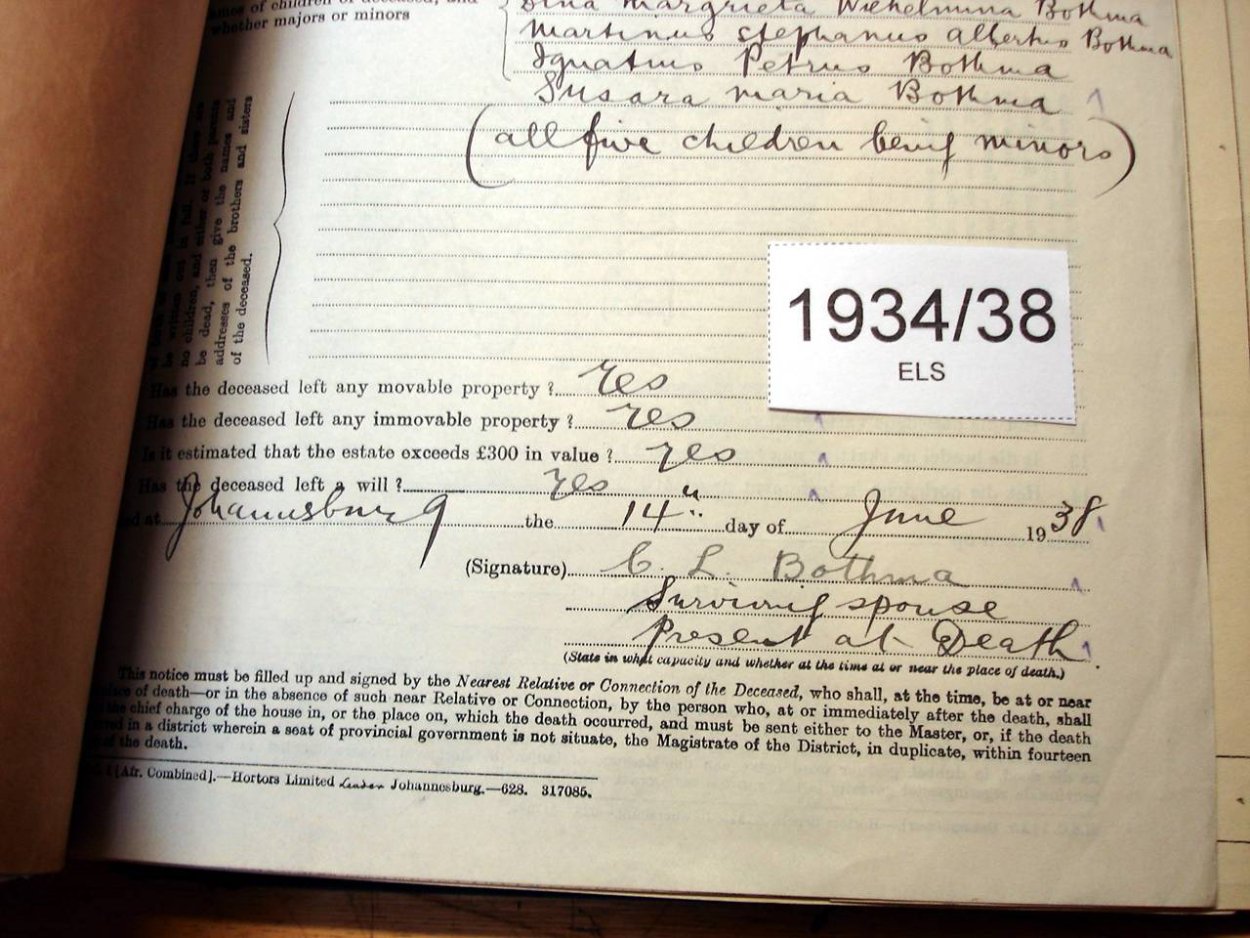 names of children of deceased, and
whether majors or minors
Dina Margrieta Wilhelmina Bothma
Martinus Stephanus Albertus Bothma
Ignatius Petrus Bothma
Susara Maria Bothma
(all five children being minors)
be written out in full. If there are
no children, and either or both parents
be dead, then give the names and
addresses of the brothers and sisters
of the deceased.
1934/38
ELS
Has the deceased left any movable property ? Yes
Has the deceased left any immovable property ? Yes
Is it estimated that the estate exceeds £300 in value ? Yes
Has the deceased left a will ? Yes
at Johannesburg the 14" day of June 1938
(Signature) C. L. Bothma
Surviving spouse
Present at Death
(State in what capacity and whether at the time at or near the place of death.)
This notice must be filled up and signed by the Nearest Relative or Connection of the Deceased, who shall, at the time, be at or near
of death—or in the absence of such near Relative or Connection, by the person who, at or immediately after the death, shall
the chief charge of the house in, or the place on, which the death occurred, and must be sent either to the Master, or, if the death
in a district wherein a seat of provincial government is not situate, the Magistrate of the District, in duplicate, within fourteen
of the death.
[Afr. Combined].—Hortors Limited Johannesburg.—628. 317085.